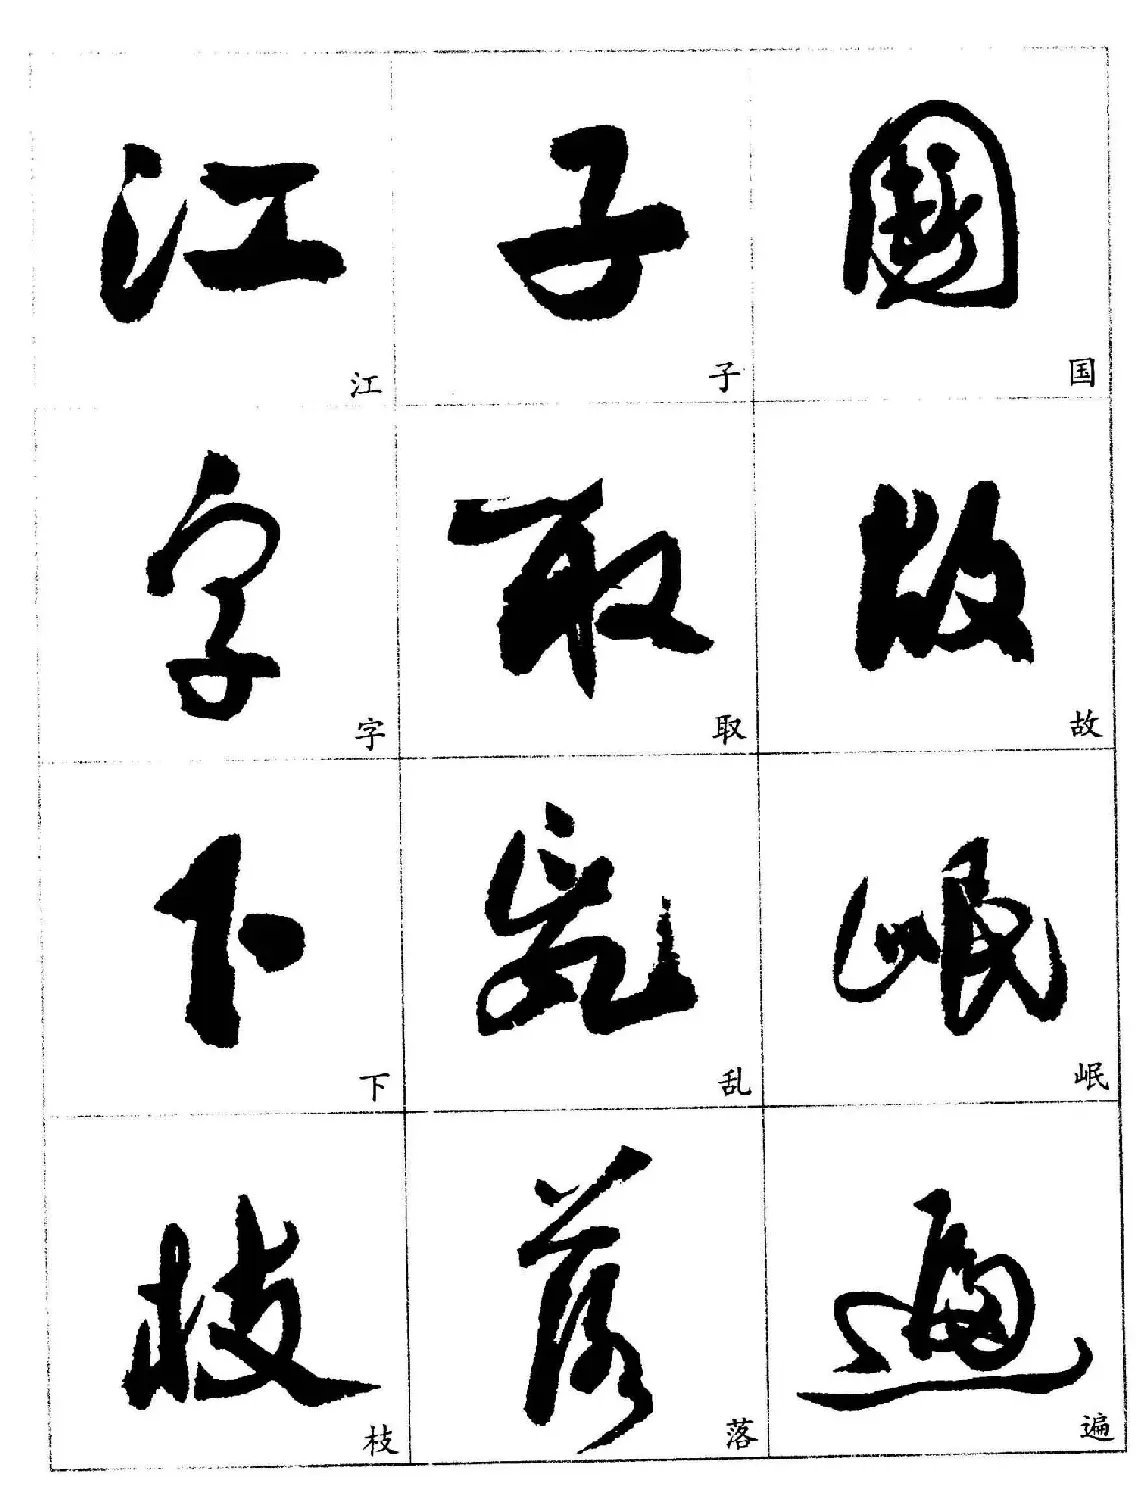 江 子 国
江 子 国
字 取 故
字 取 故
下 乱 岷
下 乱 岷
枝 落 遍
枝 落 遍